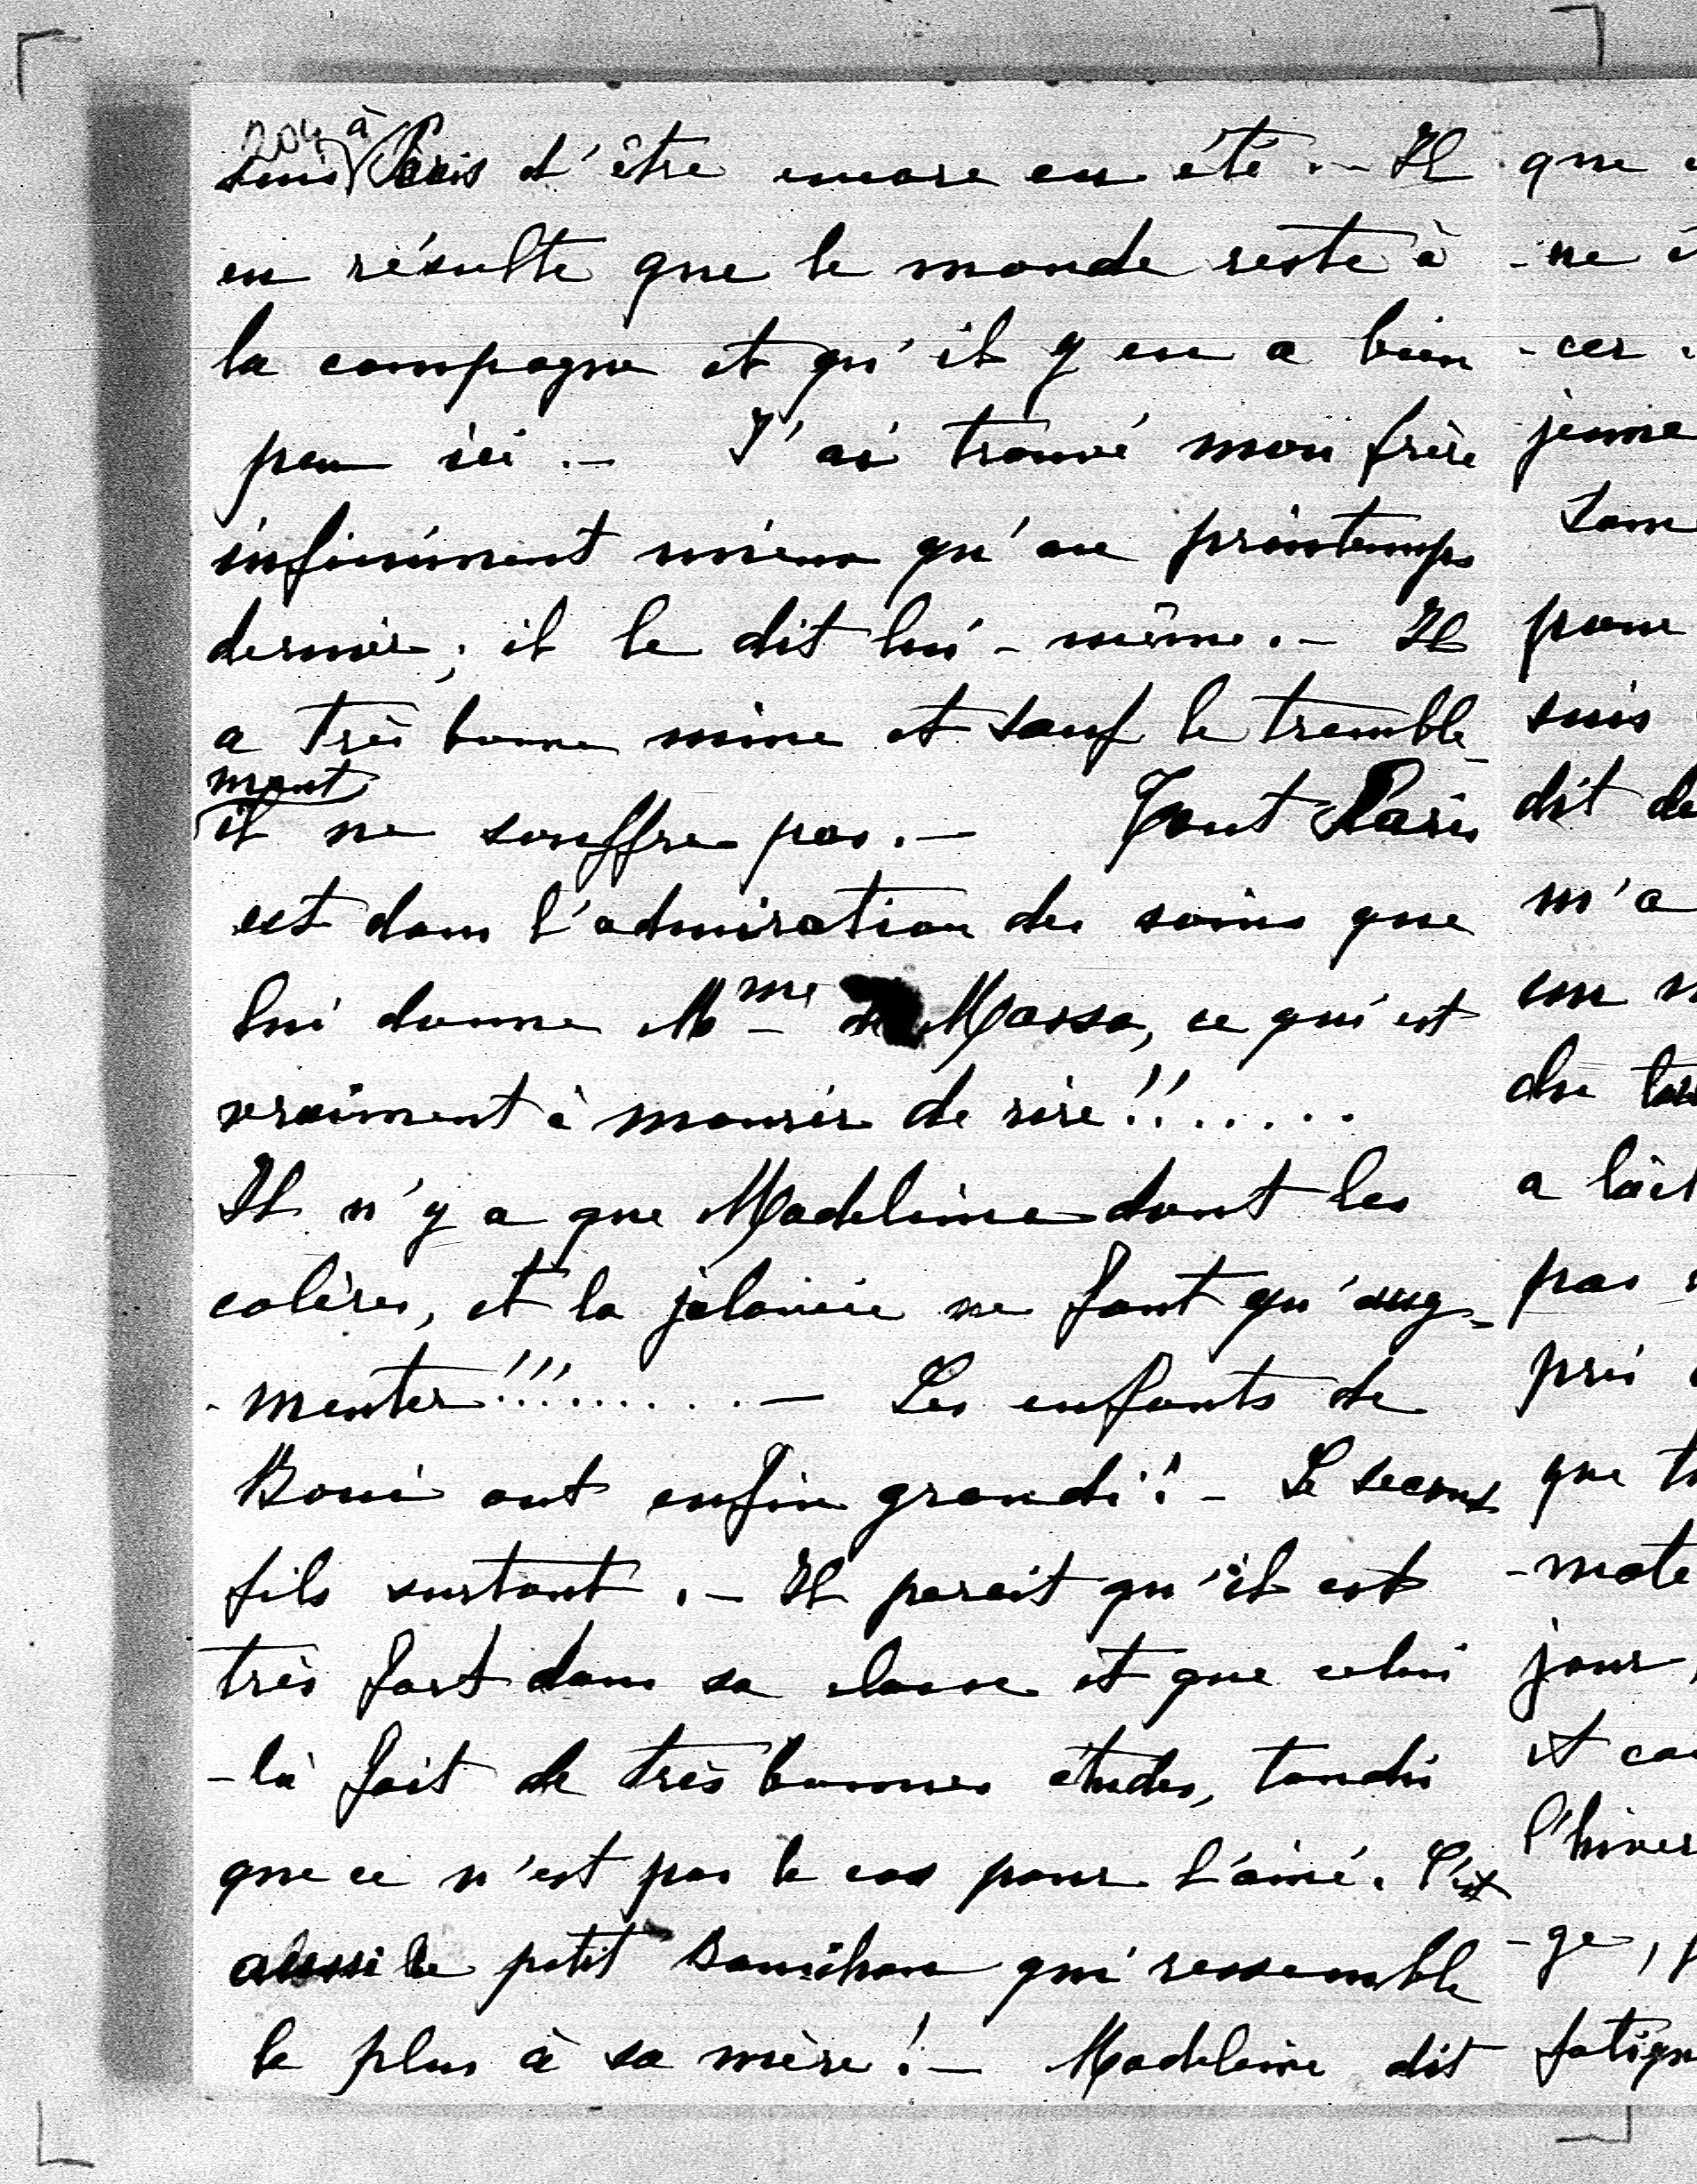 204
suis à Paris d'être encore en été. - Il
en résulte que le monde reste à
la campagne et qu'il y en a bien
peu ici. - J'ai trouvé mon frère
infiniment mieux qu'au printemps
dernier; il le dit lui-même. - Il
a très bonne mine et sauf le tremble-
ment
il ne souffre pas. - Tout Paris
est dans l'admiration des soins que
lui donne Mme de Massa, ce qui est
vraiment à mourir de rire!!.....
Il n'y a que Madeleine dont les
colères, et la jalousie ne font qu'aug=
-menter!!!....... - Les enfants de
Boni ont enfin grandi! - Le second
fils surtout. - Il parait qu'il est
très fort dans sa classe et que celui
-là fait de très bonnes études, tandis
que ce n'est pas le cas pour l'ainé. C'est
aussi le petit qui ressemble
le plus à sa mère! - Madeleine dit
que
-ne
-cer
jeune
pour
suis
dit de
m'a
un
du
a
pas
que
-mate
jour,
et
l'hiver
-ge,